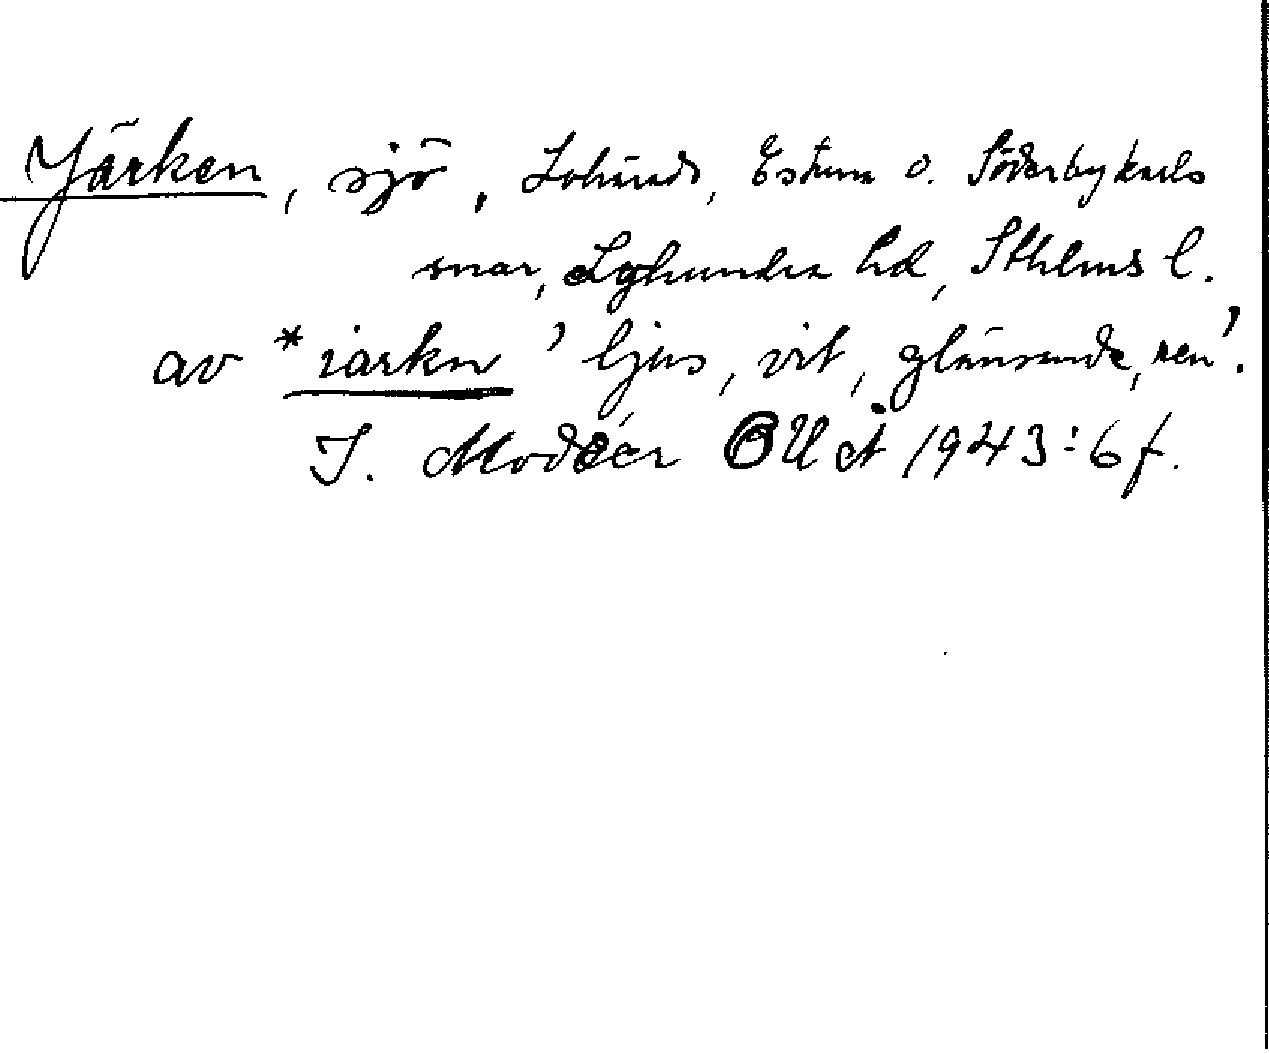 Järken, sjö, Lohärads, Estuna o. Söderbykarls
snar, Lyhundra hd, Sthlms l.
av *iarkn 'ljus, vit, glänsande, ren'.
I. Modéer OUÅ 1943:6 f.